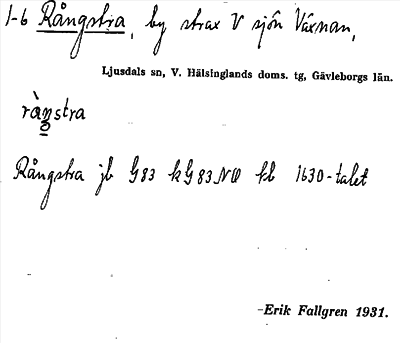 1-6 Rångstra, by strax V sjön Växnan,
Ljusdals sn, V. Hälsinglands doms. tg, Gävleborgs län.
ràŋstra
Rångstra jb G83 kG83NO kb 1630-talet
Erik Fallgren 1931.